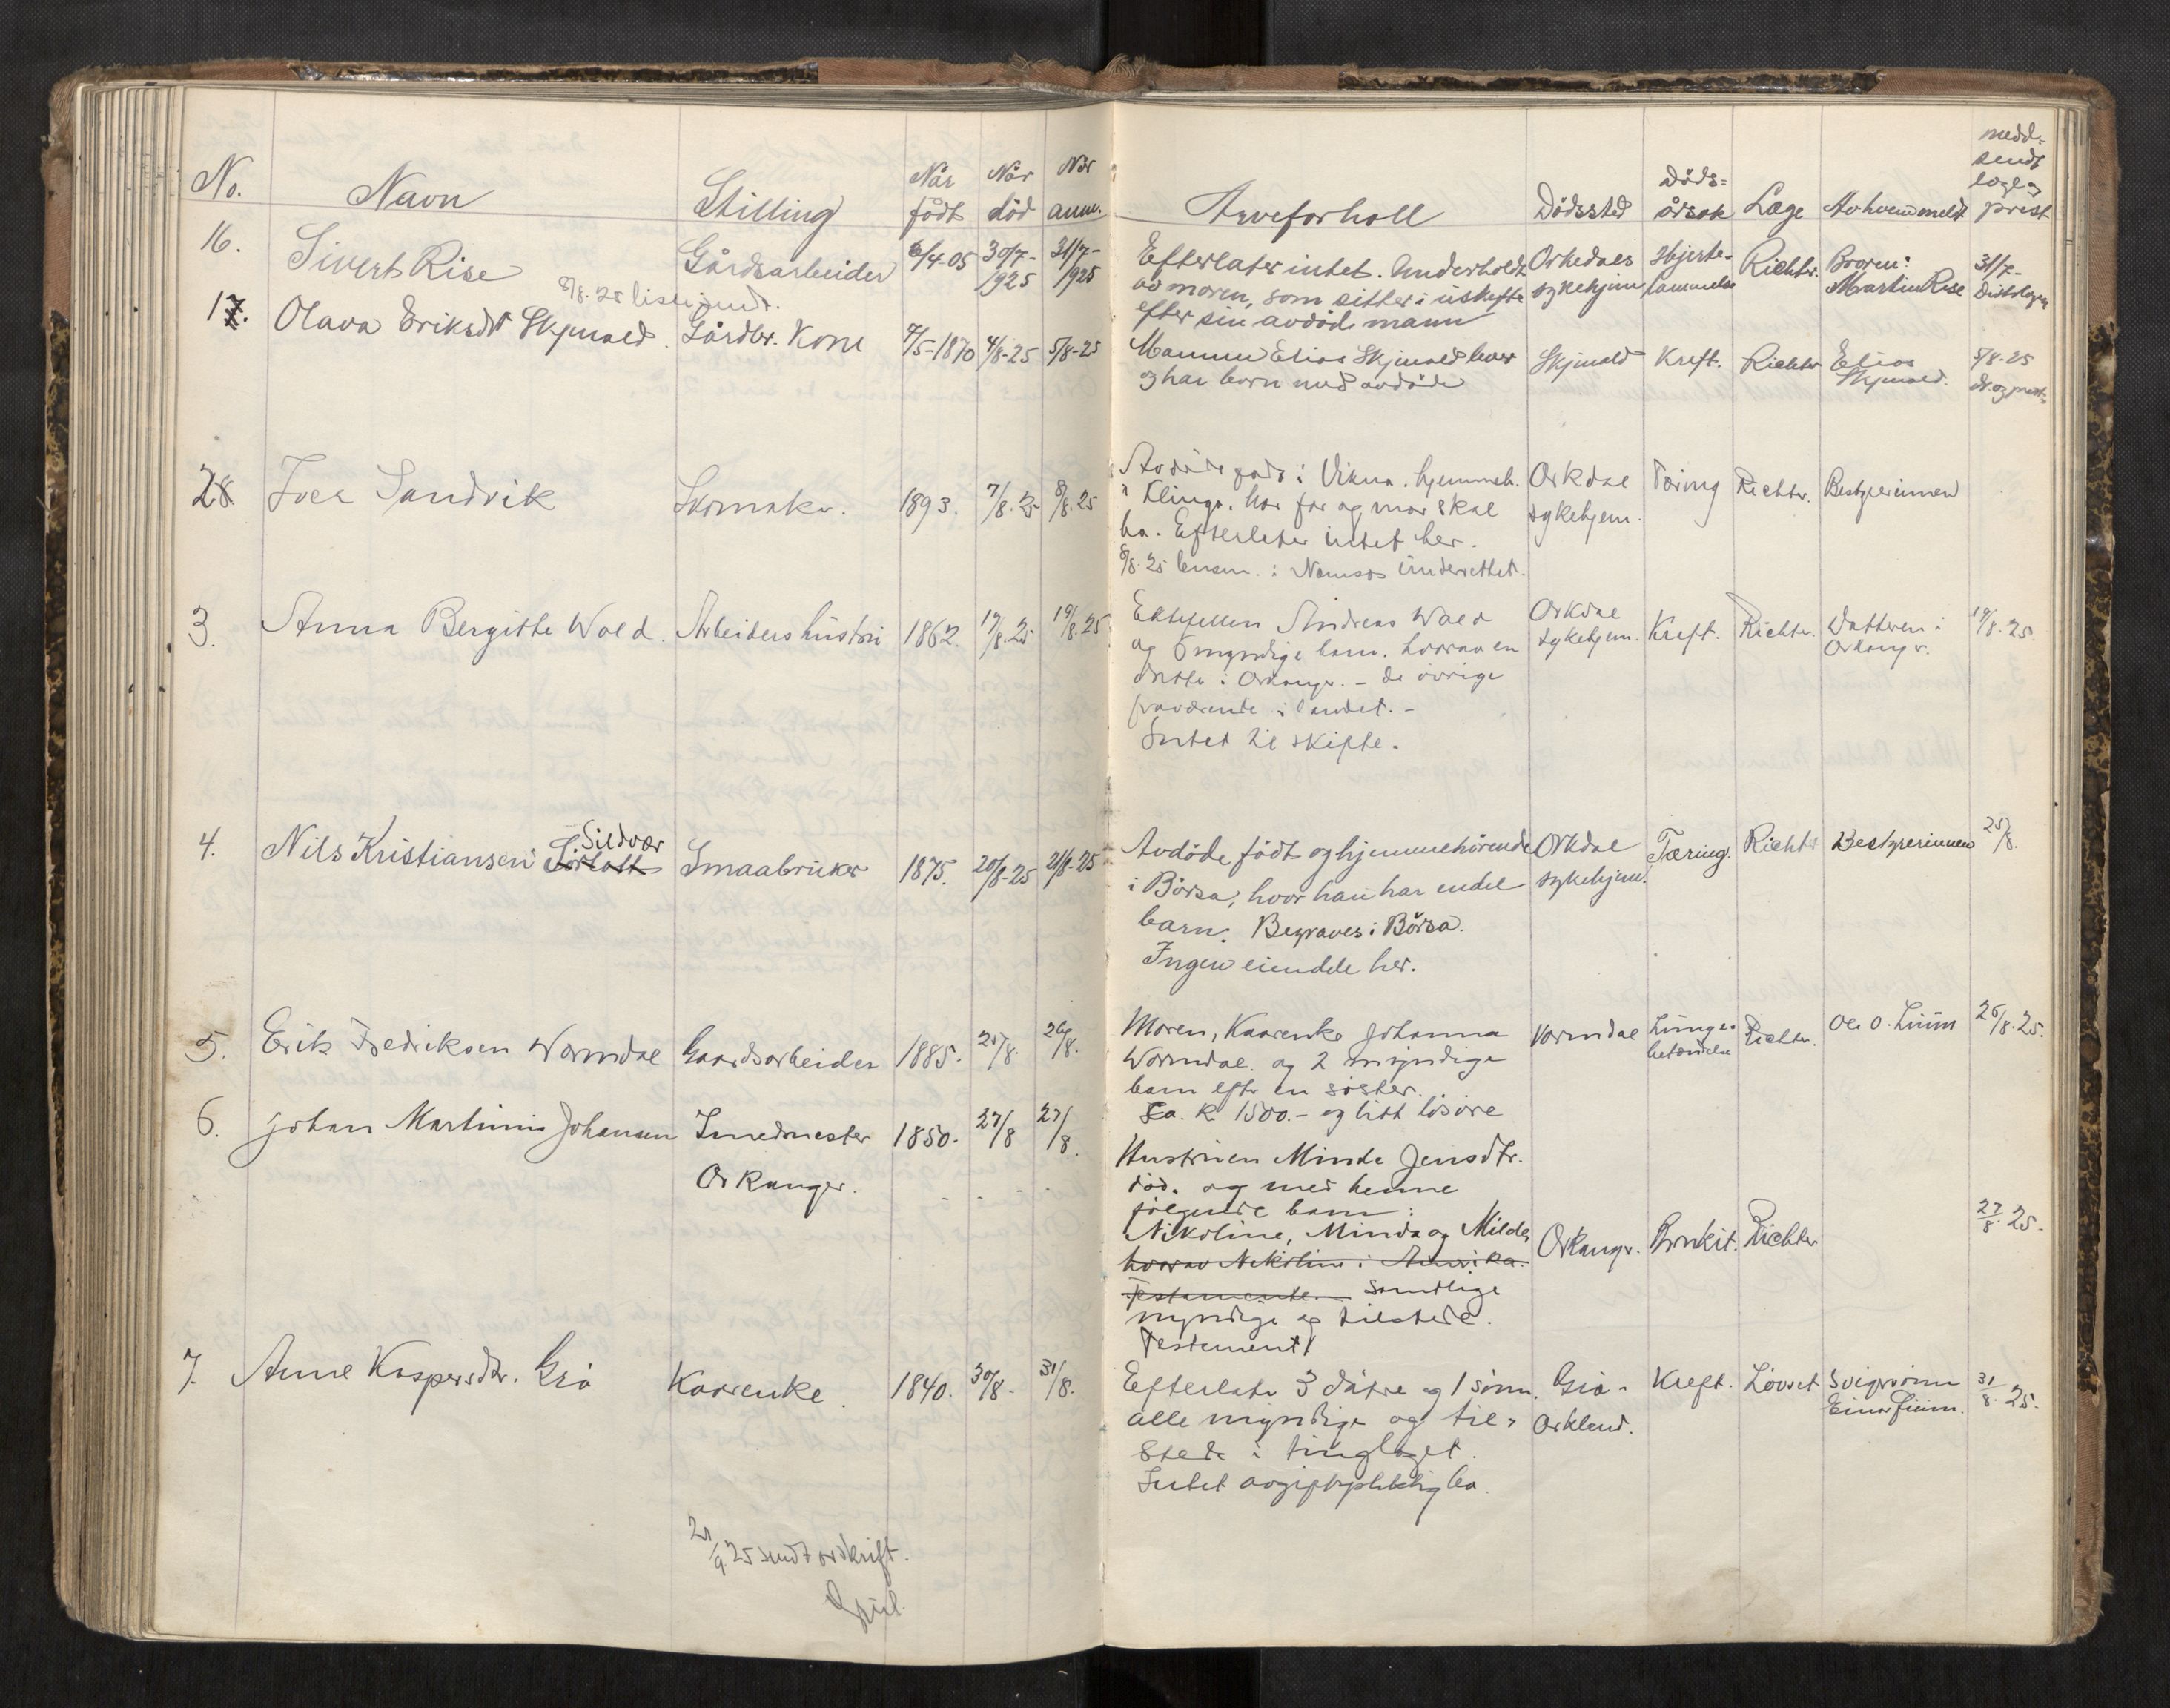 No. Navn Stilling Når født Når død Når anm. Arveforholl Dødssted Døds=årsak Læge Av hvem meldt medd. sendt læge og prest
16. Sivert Rise Gårdsarbeider 6/4-05 30/7-1925 31/7-1925 Efterlater intet. Underholdt Orkedals sykehjem Hjerte-lammelse Richter. Broren: Martin Rise 31/7-
av moren, som sitter i uskifte
efter sin avdøde mann
8/8.25 liste innd.
17. Olava Eriksdt Skjenald. Gårdbr. Kone 7/5-1870 4/8-25 5/8-25 Mannen Elias Skjenald lever Skjenald Kreft. Richter Elias Skjenald. 5/8-25 dr. og prest.
og har barn med avdøde
28. Iver Sandvik Skomaker. 1893. 7/8.25 8/8.25 Avdøde født i Vikna. hjemmeh. Orkdal sykehjem. Tæring Richter. Bestyrerinnen
i Klinga. Har far og mor skal
ha. Efterlater intet her.
8/8.25 lensm. i Namsos underrettet.
3. Anna Bergitte Wold. Arbeiders hustru 1862. 17/8.25 19/8.25 Ektefellen Andreas Wold Orkdal sykehjem. Kreft. Richter. Datteren i Orkanger. 19/8.25.
og 6 myndige barn. hvorav en
datter i Orkanger. - de øvrige
fraværende i landet. -
Intet til skifte.
4. Nils Kristiansen Sildvær Smaabruker 1875. 20/8-25 21/8-25 Avdøde født og hjemmehørende Orkdal sykehjem. Tæring. Richter Bestyrerinnen 25/8.
i Børsa, hvor han har endel
barn. Begraves i Børsa.
Ingen eiendele her.
5. Erik Fredriksen Wormdal Gaardsarbeider 1885. 25/8. 26/8. Moren, Kaarenke Johanna Vormdal Lunge=betændelse Richter. Ole O. Lium 26/8.25.
Wormdal. og 2 myndige
barn efter en søster.
ca. k 1500.- og litt løsøre
6. Johan Martinus Johansen Smedmester 1850. 27/8 27/8.
Orkanger.
Hustruen Minda Jensdtr.
død. og med henne
følgende barn:
Nikoline, Minda og Milda, Orkanger. Bronkit. Richter 27/8.25.
hvorav Nikoline i Amerika.
Testamente. Samtlige
myndige og tilstede.
Testament!
7. Anne Kaspersdtr. Gjø Kaarenke. 1840. 30/8. 31/8. Efterlater 3 døtre og 1 sønn. Orkland. Kreft. Løvset Svigersønn Einar Lium. 31/8.25.
alle myndige og til=
stede i tinglaget.
Intet avgiftspliktig bo.
21/9.25 sendt avskrift.